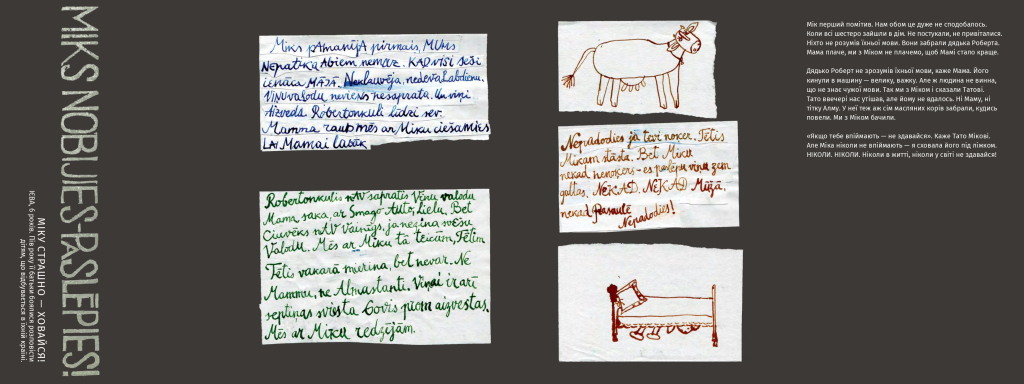 MIKS NOBIJIES-PASLĒPIES!
МІКУ СТРАШНО — ХОВАЙСЯ!
ІЄВА, 6 років. Пів року її батьки боялися розповісти
дітям, що відбувається в їхній країні.
Miks pAmanījA pirmais, MUMS
Nepatika Abiem nemaz. KAD visi seši
ienāca MĀJĀ. Neklauvēja, nedeva labdienu.
Viņu valodu neviens nesaprata. Un viņi
Aizveda Robertonkuli līdzi sev.
Mamma raud mēs ar Miku ciešamies
LAi Mamai labāk
Robertonkulis nAV sapratis Viņu valodu
Mama saka, ar Smago Auto, lielu. Bet
Cilvēks nAV Vainīgs, ja nezina svešu
Valodu. Mēs ar Miku tā teicām, Tētim
Tētis vakarā mierina, bet nevar. Ne
Mammu, ne Almastanti. Viņai ir arī
septiņas sviesta Govis prom aizvestas.
Mēs ar Miku redzējām.
Nepadodies ja tevi noķer. Tētis
Mikam stāsta. Bet Miku
nekad nenoķers - es paslēpu viņu zem
gultas. NEKAD. NEKAD Mūžā,
nekad Pasaulē
Nepadodies!
Мік перший помітив. Нам обом це дуже не сподобалось.
Коли всі шестеро зайшли в дім. Не постукали, не привіталися.
Ніхто не розумів їхньої мови. Вони забрали дядька Роберта.
Мама плаче, ми з Міком не плачемо, щоб Мамі стало краще.
Дядько Роберт не зрозумів їхньої мови, каже Мама. Його
кинули в машину — велику, важку. Але ж людина не винна,
що не знає чужої мови. Так ми з Міком і сказали Татові.
Тато ввечері нас утішав, але йому не вдалось. Ні Маму, ні
тітку Алму. У неї теж аж сім масляних корів забрали, кудись
повели. Ми з Міком бачили.
«Якщо тебе впіймають — не здавайся». Каже Тато Мікові.
Але Міка ніколи не впіймають — я сховала його під ліжком.
НІКОЛИ. НІКОЛИ. Ніколи в житті, ніколи у світі не здавайся!